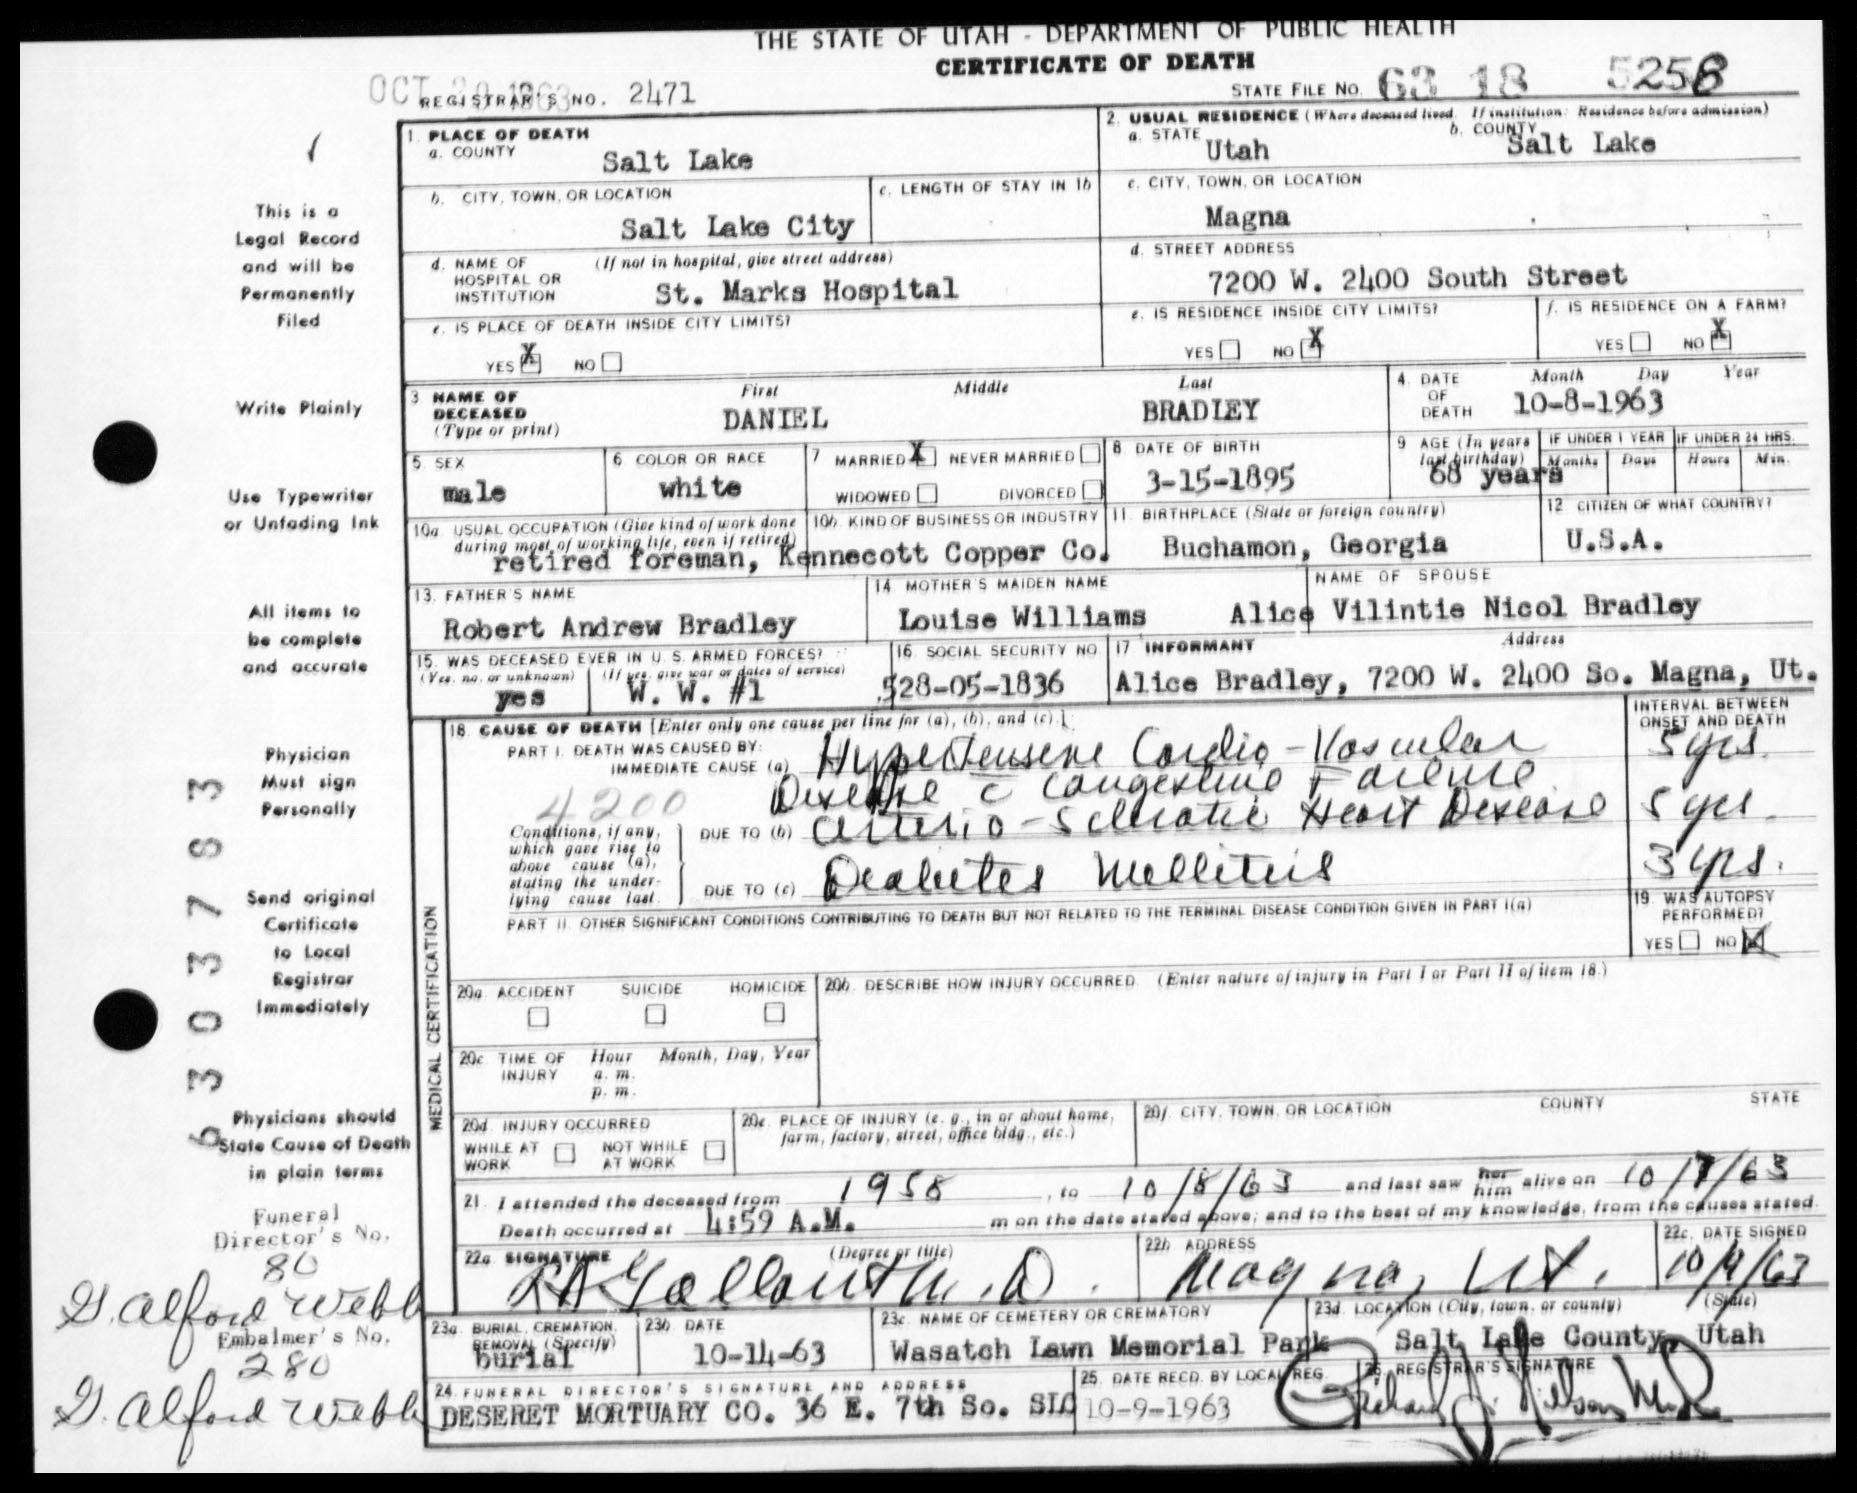 THE STATE OF UTAH - DEPARTMENT OF PUBLIC HEALTH
CERTIFICATE OF DEATH
OCT 1963
REGISTRAR'S NO. 2471
STATE FILE NO. 63 18 5258
This is a
Legal Record
and will be
Permanently
Filed
Write Plainly
Use Typewriter
or Unfading Ink
All items to
be complete
and accurate
Physician
Must sign
Personally
Send original
Certificate
to Local
Registrar
Immediately
Physicians should
State Cause of Death
in plain terms
Funeral
Director's No.
80
G. Alford Webb
Embalmer's No.
280
G. Alford Webb
63037783
1. PLACE OF DEATH
a. COUNTY
Salt Lake
b. CITY, TOWN, OR LOCATION
Salt Lake City
c. LENGTH OF STAY IN 1b
d. NAME OF HOSPITAL OR INSTITUTION (If not in hospital, give street address)
St. Marks Hospital
e. IS PLACE OF DEATH INSIDE CITY LIMITS?
YES X NO
2. USUAL RESIDENCE (Where deceased lived. If institution: Residence before admission)
a. STATE Utah b. COUNTY Salt Lake
c. CITY, TOWN, OR LOCATION
Magna
d. STREET ADDRESS
7200 W. 2400 South Street
e. IS RESIDENCE INSIDE CITY LIMITS?
YES NO X
f. IS RESIDENCE ON A FARM?
YES NO X
3 NAME OF DECEASED (Type or print)
First Middle Last
DANIEL BRADLEY
4. DATE OF DEATH Month Day Year
10-8-1963
5. SEX
male
6 COLOR OR RACE
white
7 MARRIED X NEVER MARRIED
WIDOWED DIVORCED
8 DATE OF BIRTH
3-15-1895
9 AGE (In years last birthday)
68 years
IF UNDER 1 YEAR IF UNDER 24 HRS.
Months Days Hours Min.
10a. USUAL OCCUPATION (Give kind of work done during most of working life, even if retired)
10b. KIND OF BUSINESS OR INDUSTRY
retired foreman, Kennecott Copper Co.
11. BIRTHPLACE (State or foreign country)
Buchamon, Georgia
12. CITIZEN OF WHAT COUNTRY?
U.S.A.
13. FATHER'S NAME
Robert Andrew Bradley
14 MOTHER'S MAIDEN NAME
Louise Williams
NAME OF SPOUSE
Alice Vilintie Nicol Bradley
15. WAS DECEASED EVER IN U. S. ARMED FORCES?
(Yes, no, or unknown) (If yes, give war or dates of service)
yes W. W. #1
16. SOCIAL SECURITY NO.
528-05-1836
17 INFORMANT Address
Alice Bradley, 7200 W. 2400 So. Magna, Ut.
MEDICAL CERTIFICATION
18. CAUSE OF DEATH [Enter only one cause per line for (a), (b), and (c).]
INTERVAL BETWEEN ONSET AND DEATH
PART I. DEATH WAS CAUSED BY:
IMMEDIATE CAUSE (a) Hypertensive Cardio-Vascular 5 yrs.
Disease c̄ Congestive Failure
4200
Conditions, if any, which gave rise to above cause (a), stating the underlying cause last.
DUE TO (b) Arterio-Sclerotic Heart Disease 5 yrs.
DUE TO (c) Diabetes Mellitus 3 yrs.
PART II. OTHER SIGNIFICANT CONDITIONS CONTRIBUTING TO DEATH BUT NOT RELATED TO THE TERMINAL DISEASE CONDITION GIVEN IN PART I(a)
19. WAS AUTOPSY PERFORMED?
YES NO X
20a. ACCIDENT SUICIDE HOMICIDE
20b. DESCRIBE HOW INJURY OCCURRED. (Enter nature of injury in Part I or Part II of item 18.)
20c. TIME OF INJURY Hour Month, Day, Year
a. m.
p. m.
20d. INJURY OCCURRED
WHILE AT WORK NOT WHILE AT WORK
20e. PLACE OF INJURY (e. g., in or about home, farm, factory, street, office bldg., etc.)
20f. CITY, TOWN, OR LOCATION COUNTY STATE
21. I attended the deceased from 1958, to 10/8/63 and last saw her him alive on 10/7/63
Death occurred at 4:59 A.M. m on the date stated above; and to the best of my knowledge, from the causes stated.
22a. SIGNATURE (Degree or title)
M.D.
22b. ADDRESS
Magna, Ut.
22c. DATE SIGNED
10/9/63
23a. BURIAL, CREMATION, REMOVAL (Specify)
burial
23b DATE
10-14-63
23c. NAME OF CEMETERY OR CREMATORY
Wasatch Lawn Memorial Park
23d. LOCATION (City, town, or county) (State)
Salt Lake County, Utah
24. FUNERAL DIRECTOR'S SIGNATURE AND ADDRESS
DESERET MORTUARY CO. 36 E. 7th So. SLC
25. DATE RECD. BY LOCAL REG.
10-9-1963
26. REGISTRAR'S SIGNATURE